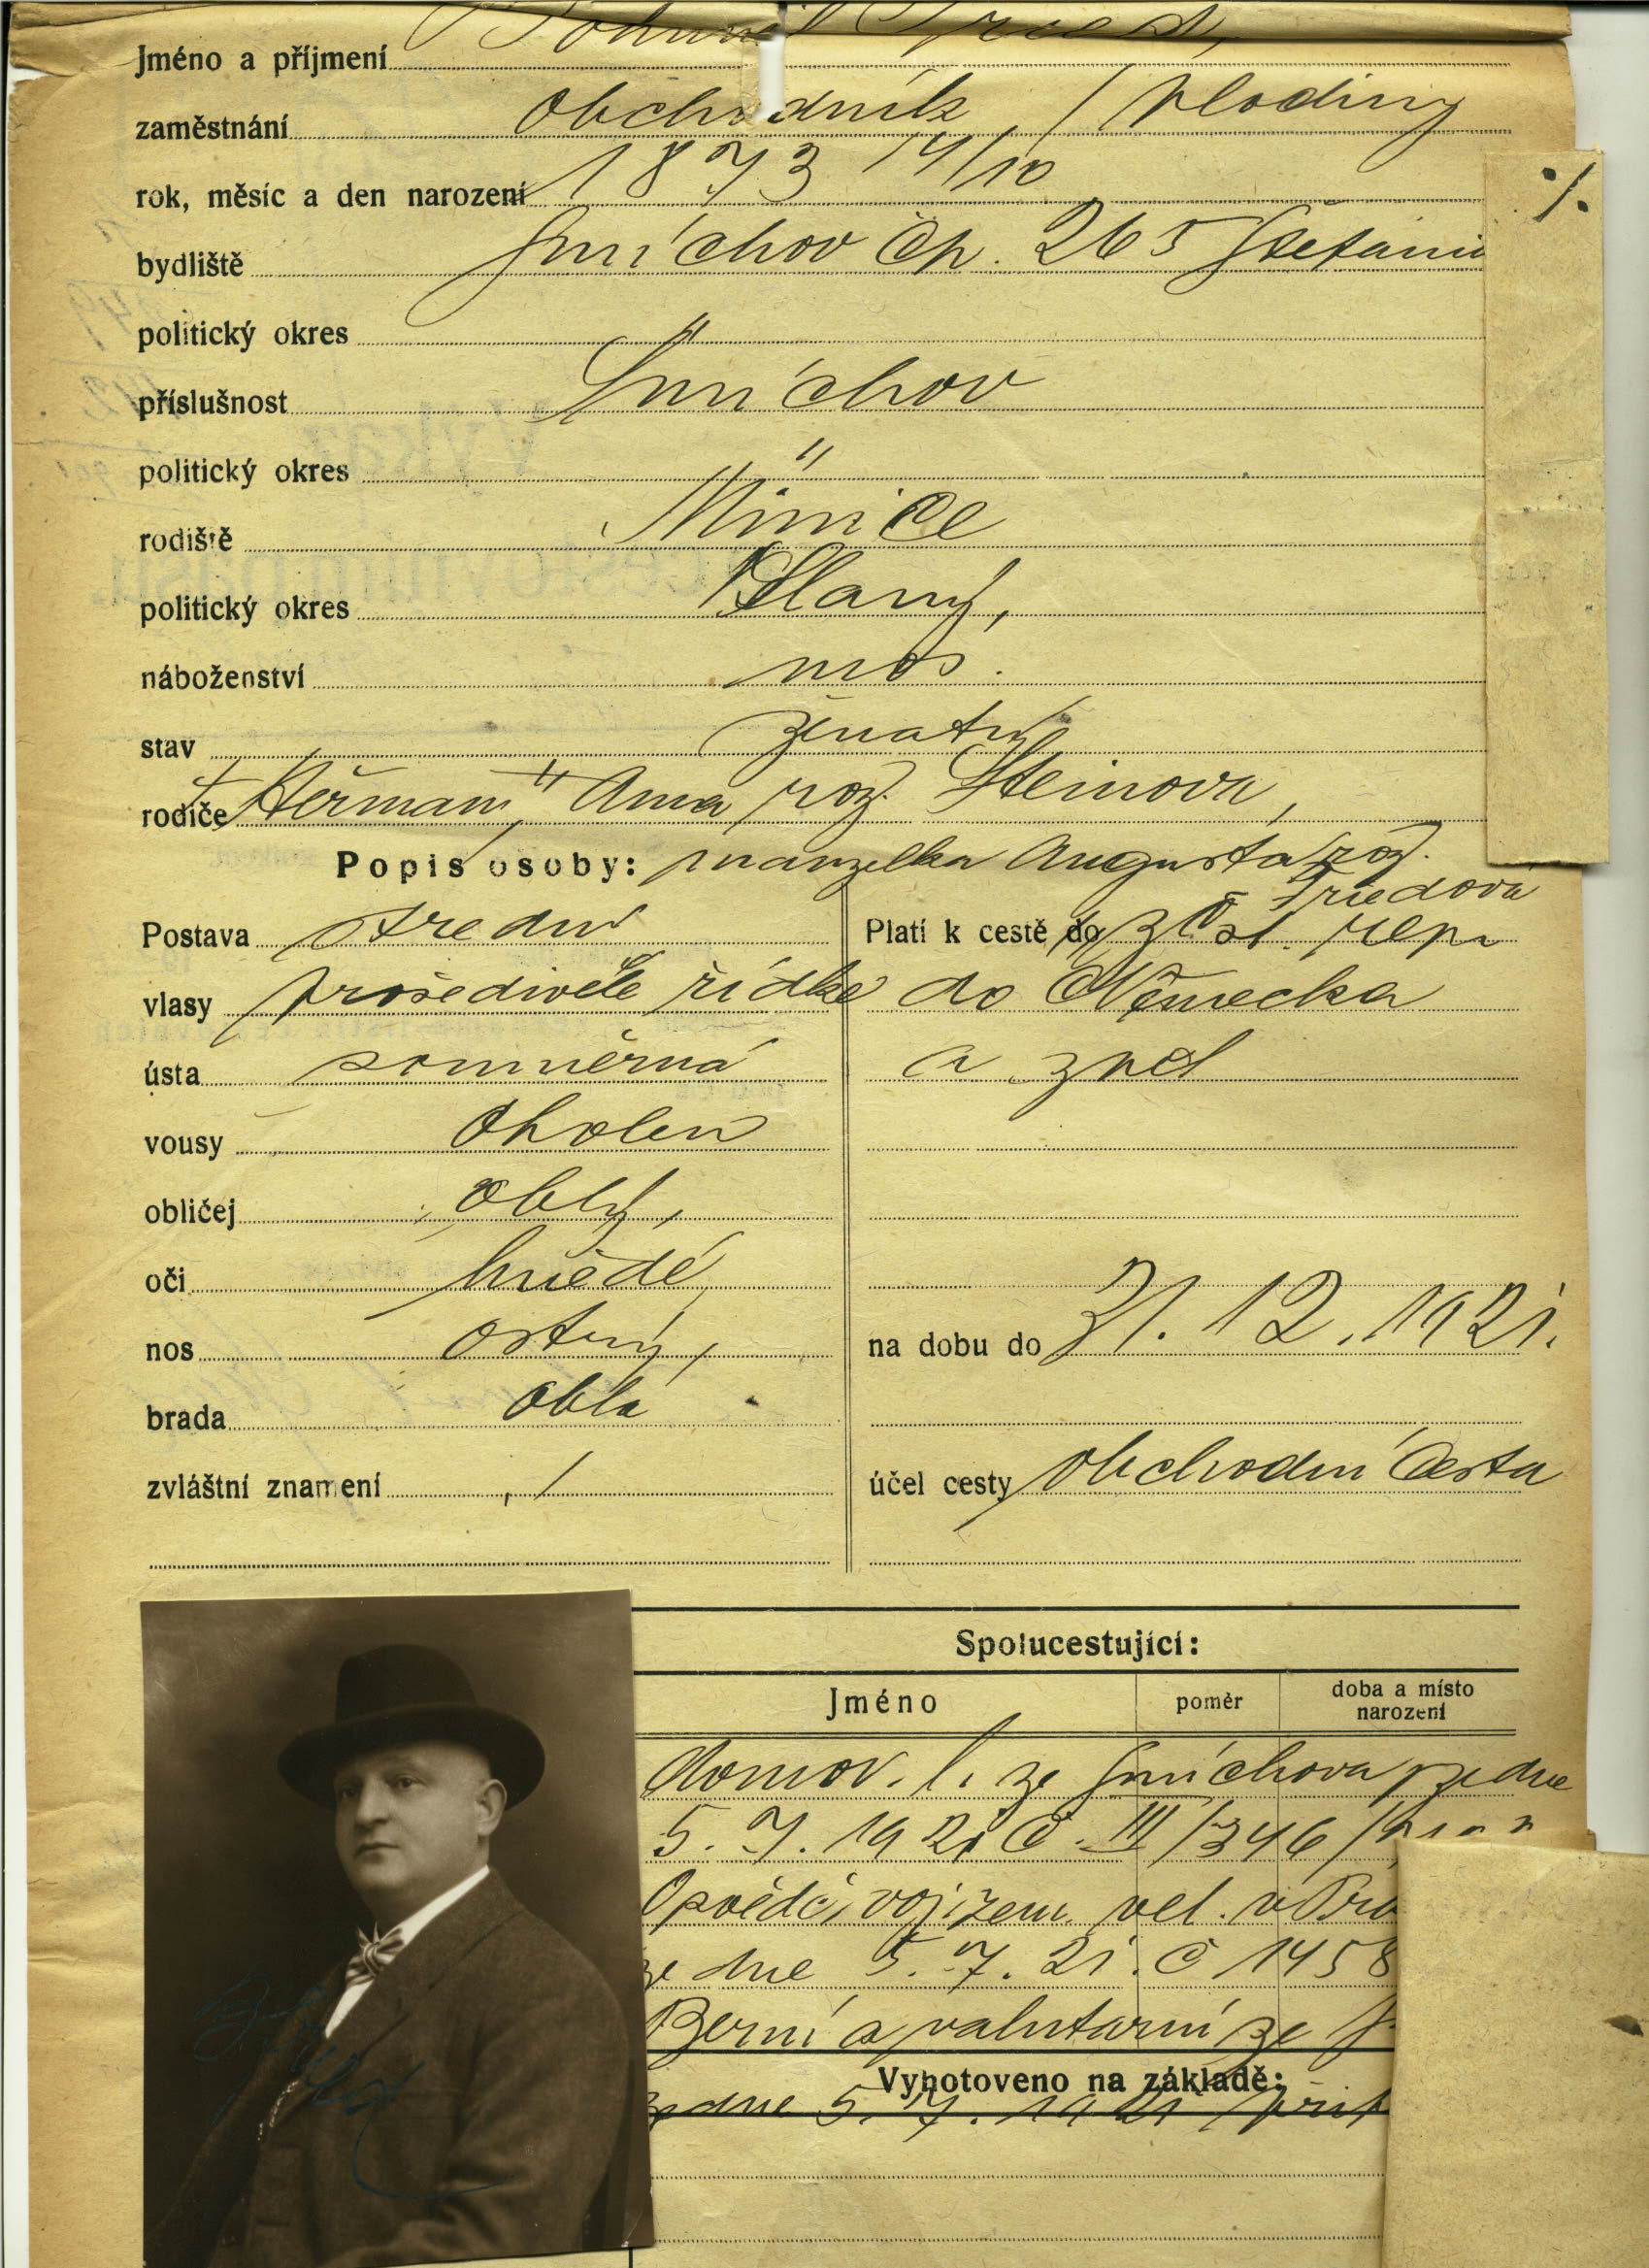 Jméno a příjmení Bohumil Fried,
zaměstnání obchodník / plodiny
rok, měsíc a den narození 1873 14/10
bydliště Smíchov čp. 265 Štefanie
politický okres "
příslušnost Smíchov
politický okres "
rodiště Minice
politický okres Slaný,
náboženství mos.
stav ženatý
rodiče Heřman, Anna roz. Steinova,
Popis osoby: manželka Augusta roz.
Friedová
Postava střední
Platí k cestě do z čsl. rep.
vlasy prošedivělé řídké
do Německa
ústa souměrná
a zpět
vousy oholen
obličej oblý,
oči hnědé,
nos ostrý,
na dobu do 31. 12. 1921.
brada oblá
zvláštní znamení /
účel cesty obchodní cesta
Spolucestující:
Jméno
poměr
doba a místo
narození
domov. l. ze Smíchova ze dne
5. 7. 1921 č. III/346/
vojzem. vel. v
ze dne 5. 7. 21. č 1458
Berní a valutární ze
Vyhotoveno na základě:
ze dne 5. 7. 1921